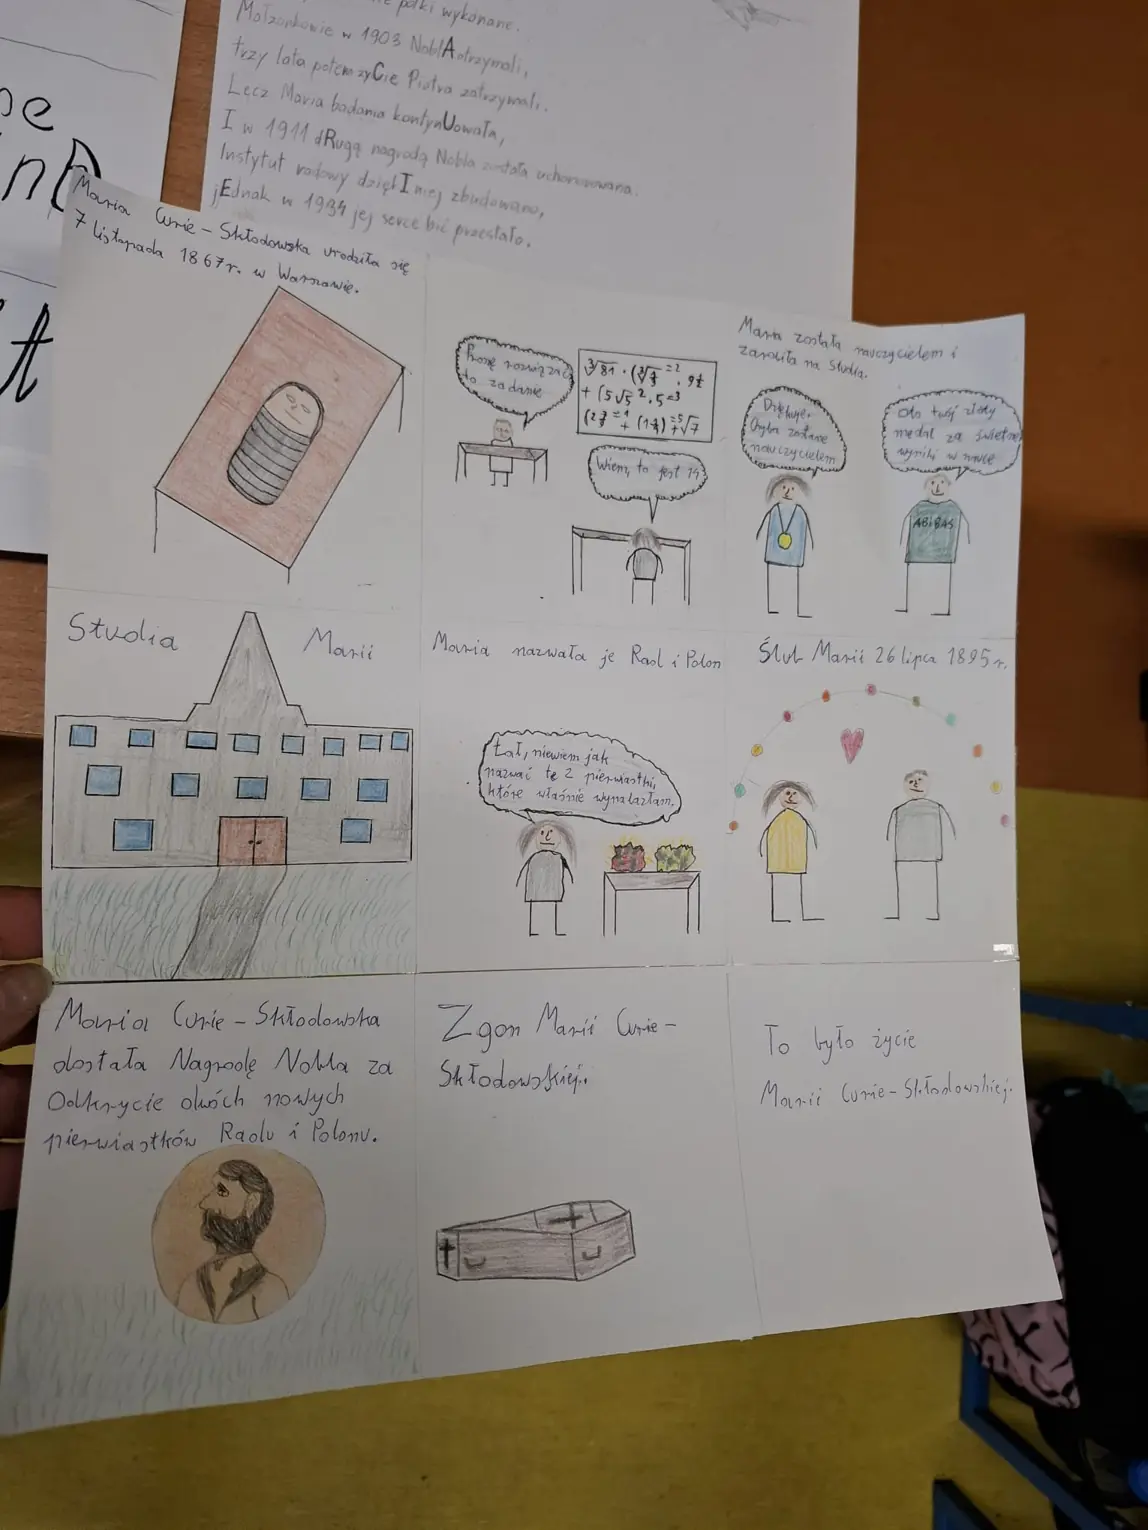 półki wykonane.
Małżonkowie w 1903 NoblA otrzymali,
trzy lata potem życCie Piotra zatrzymali.
Lecz Maria badania kontynUowała,
I w 1911 dRugą nagrodą Nobla została uhonorowana.
Instytut radowy dzięki niej zbudowano,
jEdnak w 1934 jej serce bić przestało.
Maria Curie - Skłodowska urodziła się
7 listopada 1867r. w Warszawie.
Proszę rozwiązać
to zadanie
Wiem, to jest 14
Maria została nauczycielem i
zarobiła na studia.
Dziękuję.
Chyba zostanę
nauczycielem
Oto twój złoty
medal za świetne
wyniki w nauce
ABIBAS
Studia Marii
Maria nazwała je Rad i Polon
Łał, niewiem jak
nazwać te 2 pierwiastki,
które właśnie wynalazłam.
Ślub Marii 26 lipca 1895r.
Maria Curie - Skłodowska
dostała Nagrodę Nobla za
Odkrycie dwóch nowych
pierwiastków Radu i Polonu.
Zgon Marii Curie -
Skłodowskiej.
To było życie
Marii Curie - Skłodowskiej.